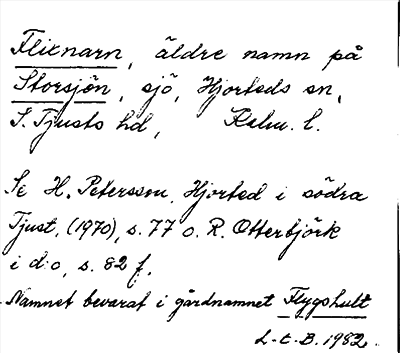 Fliknarn, äldre namn på
Storsjön, sjö, Hjorteds sn,
S. Tjusts hd, Kalm. l.
Se H. Petersson, Hjorted i södra
Tjust, (1970), s. 77 o. R. Otterbjörk
i d:o, s. 82 f.
Namnet bevarat i gårdnamnet Flygshult
L.-E.B. 1982.